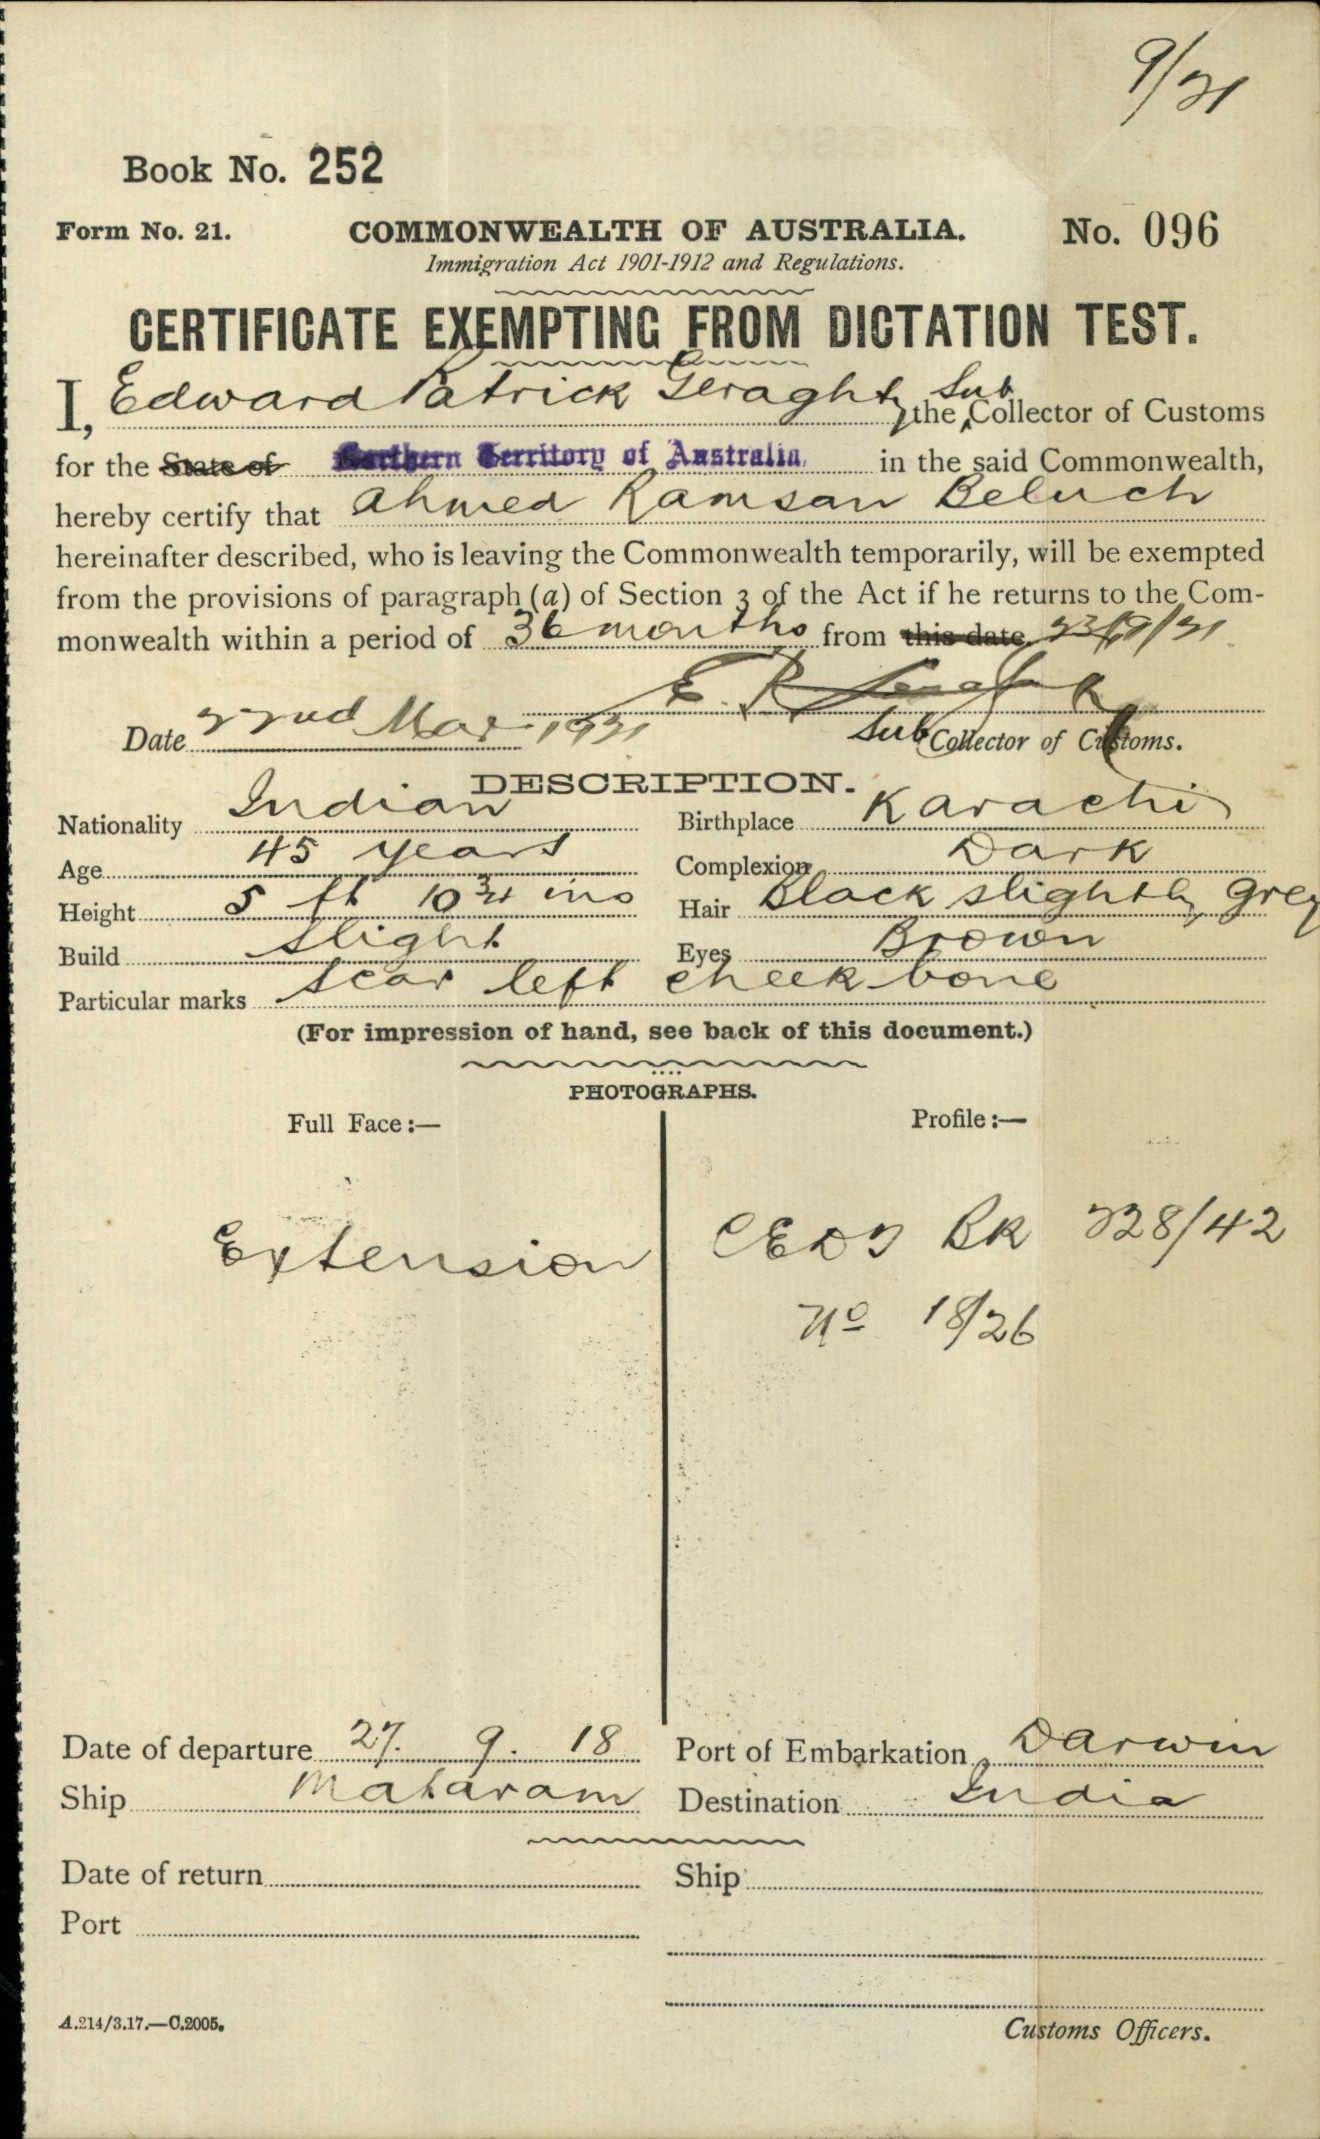 9/21
Book No. 252
Form No. 21. COMMONWEALTH OF AUSTRALIA. No. 096
Immigration Act 1901-1912 and Regulations.
CERTIFICATE EXEMPTING FROM DICTATION TEST.
I, Edward Patrick Geraghty the Sub Collector of Customs
for the State of Northern Territory of Australia, in the said Commonwealth,
hereby certify that Ahmed Ramsan Beluch
hereinafter described, who is leaving the Commonwealth temporarily, will be exempted
from the provisions of paragraph (a) of Section 3 of the Act if he returns to the Com-
monwealth within a period of 36 months from this date 23/9/21
Date 22nd Mar 1921
Sub Collector of Customs.
DESCRIPTION.
Nationality Indian Birthplace Karachi
Age 45 years Complexion Dark
Height 5 ft 10 3/4 ins Hair Black slightly grey
Build Slight Eyes Brown
Particular marks Scar left cheek bone
(For impression of hand, see back of this document.)
PHOTOGRAPHS.
Full Face:— Profile:—
Extension CEDT BK 228/42
No 18/26
Date of departure 27. 9. 18 Port of Embarkation Darwin
Ship Mataram Destination India
Date of return Ship
Port
A.214/3.17.—C.2005.
Customs Officers.